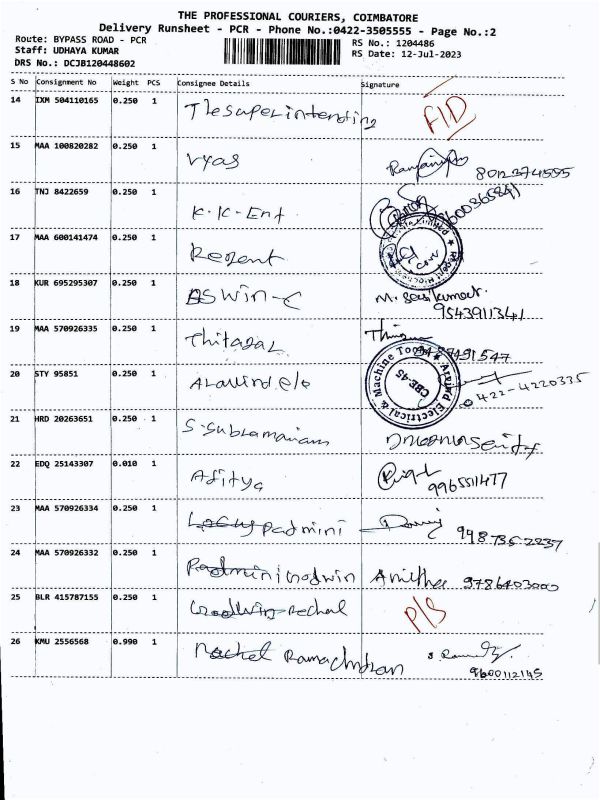 THE PROFESSIONAL COURIERS, COIMBATORE
Delivery Runsheet - PCR - Phone No.:0422-3505555 - Page No.:2
Route: BYPASS ROAD - PCR
RS No.: 1204486
Staff: UDHAYA KUMAR
RS Date: 12-Jul-2023
DRS No.: DCJB120448602
S No Consignment No Weight PCS Consignee Details Signature
14 IXM 504110165 0.250 1 The superintending FID
15 MAA 100820282 0.250 1 Vyas 8012374555
16 TNJ 8422659 0.250 1 K.K-Ent
17 MAA 600141474 0.250 1 Regent
18 KUR 695295307 0.250 1 ASWIN-C M. Sasikumar.
9543911341
19 MAA 570926335 0.250 1 Thitagal
20 STY 95851 0.250 1 Aravind e/o 0422-4220335
Arvind Electrical & Machine Tools
CBE-45
21 HRD 20263651 0.250 1 S. Subramaniam
22 EDQ 25143307 0.010 1 Aditya 9965511477
23 MAA 570926334 0.250 1 Padmini 998735-2237
24 MAA 570926332 0.250 1 Padmini Goodwin 9786403000
25 BLR 415787155 0.250 1 Goodwin Rechal P/S
26 KMU 2556568 0.990 1 Rachel Ramachndran
9600112145